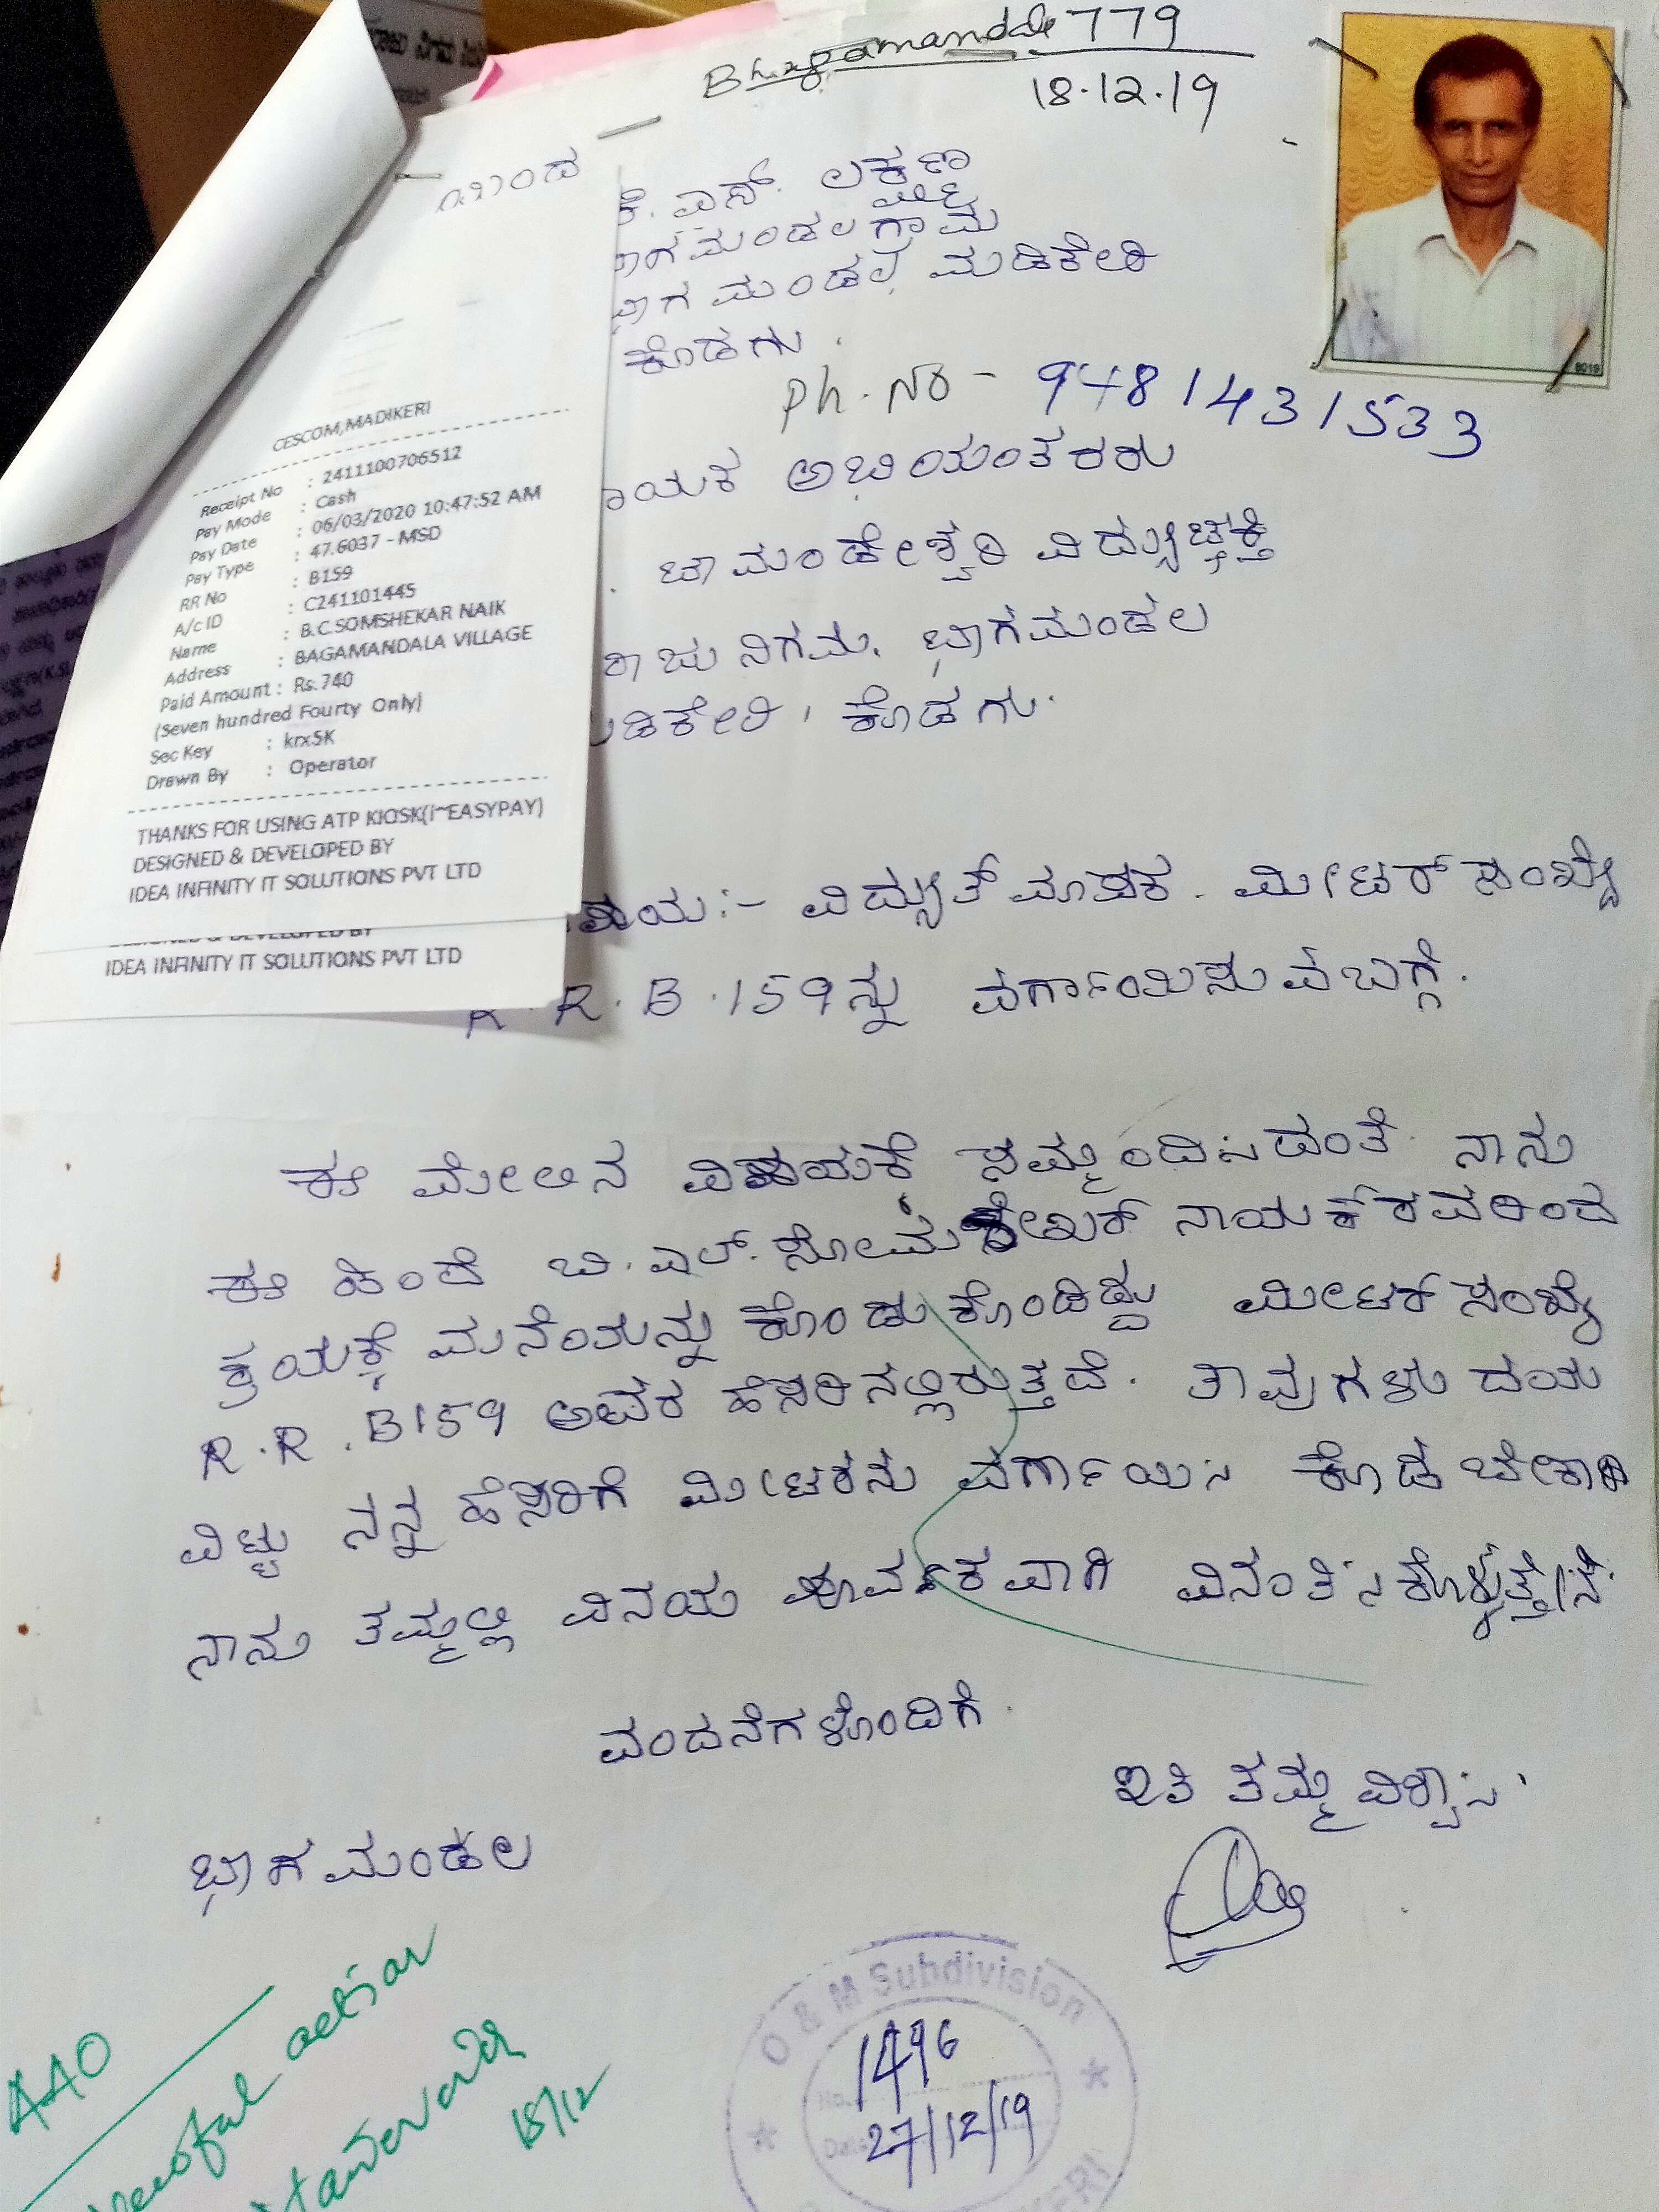 Bhagamandala 779
18.12.19
ಯಿಂದ
ಕೆ. ಎಸ್. ಲಕ್ಷ್ಮಣ
ಭಾಗಮಂಡಲ ಗ್ರಾಮ
ಭಾಗಮಂಡಲ, ಮಡಿಕೇರಿ
ಕೊಡಗು.
Ph. No - 9481431533
ಾಯಕ ಅಭಿಯಂತರರು
ಚಾಮುಂಡೇಶ್ವರಿ ವಿದ್ಯುಚ್ಛಕ್ತಿ
ರಾಜು ನಿಗಮ. ಭಾಗಮಂಡಲ
ಮಡಿಕೇರಿ, ಕೊಡಗು.
CESCOM,MADIKERI
Receipt No : 2411100706512
Pay Mode : Cash
Pay Date : 06/03/2020 10:47:52 AM
Pay Type : 47.6037 - MSD
RR No : B159
A/c ID : C241101445
Name : B.C.SOMSHEKAR NAIK
Address : BAGAMANDALA VILLAGE
Paid Amount : Rs.740
(Seven hundred Fourty Only)
Sec Key : krx5K
Drawn By : Operator
THANKS FOR USING ATP KIOSK(i~EASYPAY)
DESIGNED & DEVELOPED BY
IDEA INFINITY IT SOLUTIONS PVT LTD
DESIGNED & DEVELOPED BY
IDEA INFINITY IT SOLUTIONS PVT LTD
ಷಯ:- ವಿದ್ಯುತ್ ಮಾಪಕ. ಮೀಟರ್ ಸಂಖ್ಯೆ
R. R. B. 159ನ್ನು ವರ್ಗಾಯಿಸುವ ಬಗ್ಗೆ.
ಈ ಮೇಲಿನ ವಿಷಯಕೆ ಸಮ್ಮಂದಿಸಿದಂತೆ ನಾನು
ಈ ಹಿಂದೆ ಬಿ. ಎಲ್. ಸೋಮಶೇಖರ್ ನಾಯಕರವರಿಂದ
ಕ್ರಯಕ್ಕೆ ಮನೆಯನ್ನು ಕೊಂಡುಕೊಂಡಿದ್ದು ಮೀಟರ್ ಸಂಖ್ಯೆ
R. R. B159 ಅವರ ಹೆಸರಿನಲ್ಲಿರುತ್ತದೆ. ತಾವುಗಳು ದಯ
ವಿಟ್ಟು ನನ್ನ ಹೆಸರಿಗೆ ಮೀಟರನು ವರ್ಗಾಯಿಸಿ ಕೊಡಬೇಕಾಗಿ
ನಾನು ತಮ್ಮಲ್ಲಿ ವಿನಯ ಪೂರ್ವಕವಾಗಿ ವಿನಂತಿಸಿಕೊಳ್ಳುತ್ತೇನೆ.
ವಂದನೆಗಳೊಂದಿಗೆ.
ಇತಿ ತಮ್ಮ ವಿಶ್ವಾಸಿ
ಭಾಗಮಂಡಲ
AAO
action
18/12
O & M Subdivision
No. 1496
Date 27/12/19